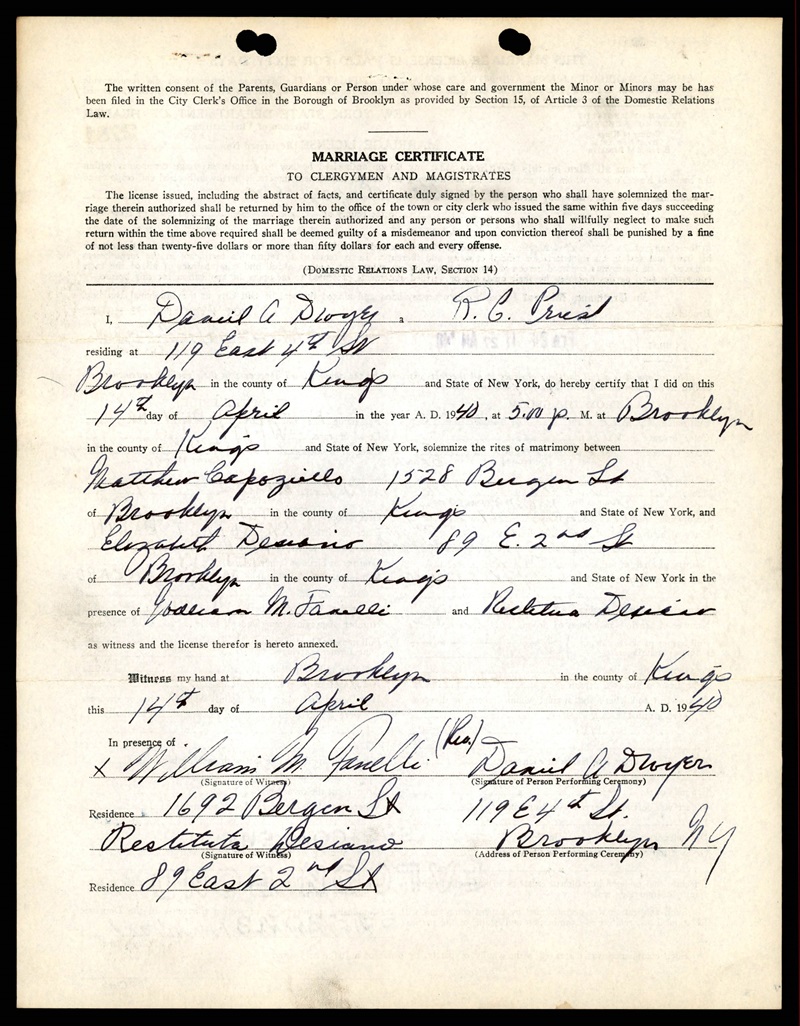 The written consent of the Parents, Guardians or Person under whose care and government the Minor or Minors may be has
been filed in the City Clerk's Office in the Borough of Brooklyn as provided by Section 15, of Article 3 of the Domestic Relations
Law.
MARRIAGE CERTIFICATE
TO CLERGYMEN AND MAGISTRATES
The license issued, including the abstract of facts, and certificate duly signed by the person who shall have solemnized the mar-
riage therein authorized shall be returned by him to the office of the town or city clerk who issued the same within five days succeeding
the date of the solemnizing of the marriage therein authorized and any person or persons who shall willfully neglect to make such
return within the time above required shall be deemed guilty of a misdemeanor and upon conviction thereof shall be punished by a fine
of not less than twenty-five dollars or more than fifty dollars for each and every offense.
(DOMESTIC RELATIONS LAW, SECTION 14)
I, Daniel A Dwyer a R. C. Priest
residing at 119 East 4th St
Brooklyn in the county of Kings and State of New York, do hereby certify that I did on this
14th day of April in the year A. D. 1940, at 5.00 p. M. at Brooklyn
in the county of Kings and State of New York, solemnize the rites of matrimony between
Matthew Capoziello 1528 Bergen St
of Brooklyn in the county of Kings and State of New York, and
Elizabeth Desiano 89 E. 2nd St
of Brooklyn in the county of Kings and State of New York in the
presence of William M. Fanelli and Restituta Desiano
as witness and the license therefor is hereto annexed.
Witness my hand at Brooklyn in the county of Kings
this 14th day of April A. D. 1940
In presence of
x William M. Fanelli (Rev.) Daniel A Dwyer
(Signature of Witness) (Signature of Person Performing Ceremony)
Residence 1692 Bergen St 119 E 4th St.
Restituta Desiano Brooklyn NY
(Signature of Witness) (Address of Person Performing Ceremony)
Residence 89 East 2nd St